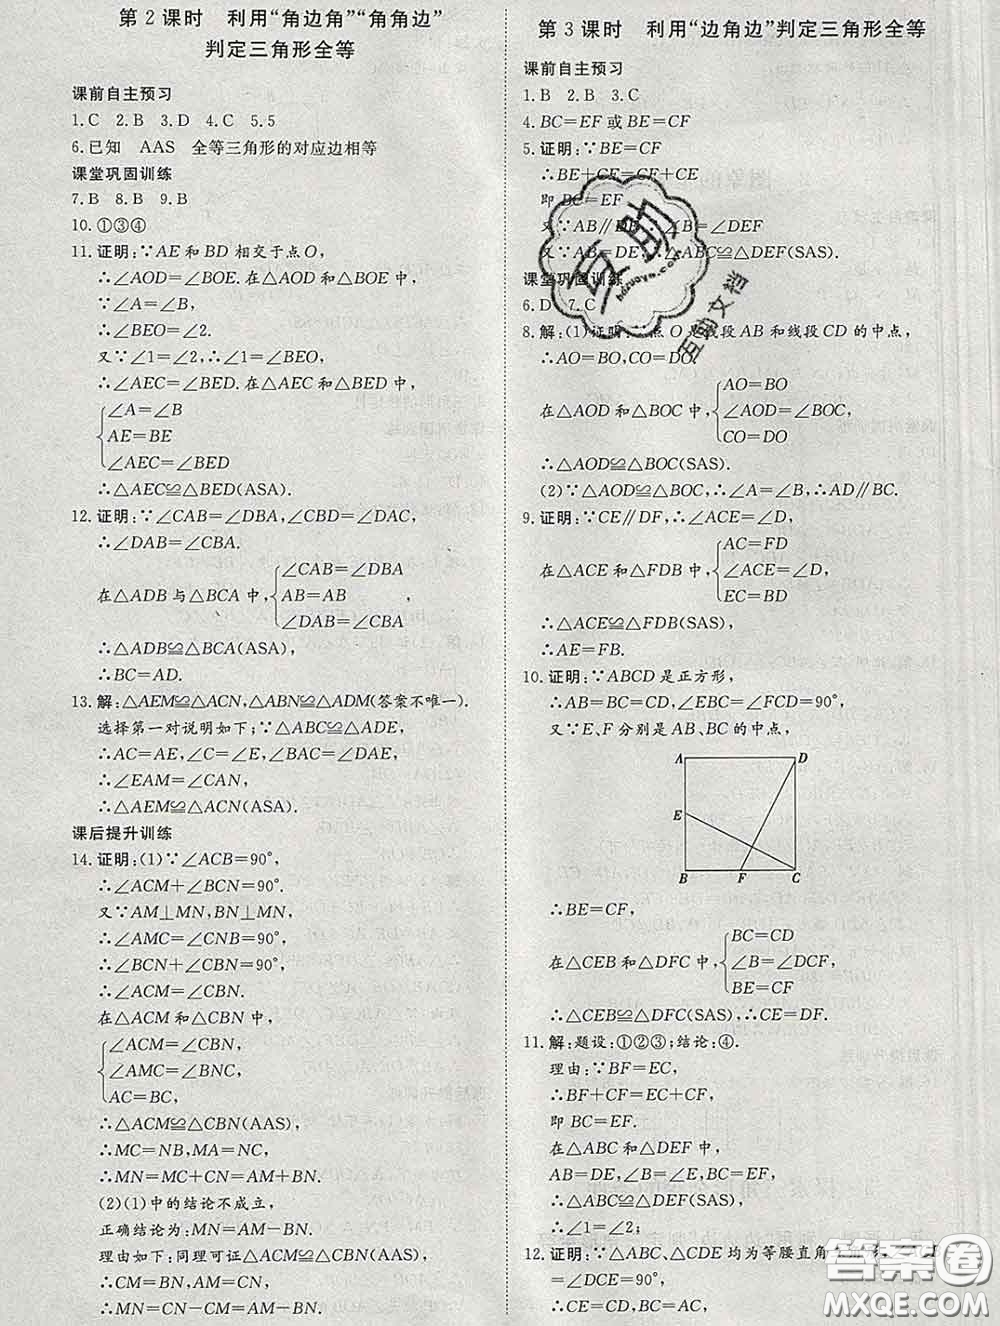 第2课时 利用“角边角”“角角边”
判定三角形全等
课前自主预习
1.C 2.B 3.D 4.C 5.5
6.已知 AAS 全等三角形的对应边相等
课堂巩固训练
7.B 8.B 9.B
10.①③④
11.证明:∵AE和BD相交于点O,
∴∠AOD=∠BOE.在△AOD和△BOE中,
∵∠A=∠B,
∴∠BEO=∠2.
又∵∠1=∠2,∴∠1=∠BEO,
∴∠AEC=∠BED.在△AEC和△BED中,
∠A=∠B
AE=BE
∠AEC=∠BED
∴△AEC≌△BED(ASA).
12.证明:∵∠CAB=∠DBA,∠CBD=∠DAC,
∴∠DAB=∠CBA.
在△ADB与△BCA中,
∠CAB=∠DBA
AB=AB
∠DAB=∠CBA
∴△ADB≌△BCA(ASA),
∴BC=AD.
13.解:△AEM≌△ACN,△ABN≌△ADM(答案不唯一).
选择第一对说明如下:∵△ABC≌△ADE,
∴AC=AE,∠C=∠E,∠BAC=∠DAE,
∴∠EAM=∠CAN,
∴△AEM≌△ACN(ASA).
课后提升训练
14.证明:(1)∵∠ACB=90°,
∴∠ACM+∠BCN=90°.
又∵AM⊥MN,BN⊥MN,
∴∠AMC=∠CNB=90°,
∴∠BCN+∠CBN=90°,
∴∠ACM=∠CBN.
在△ACM和△CBN中,
∠ACM=∠CBN,
∠AMC=∠BNC,
AC=BC,
∴△ACM≌△CBN(ASA),
∴MC=NB,MA=NC,
∴MN=MC+CN=AM+BN.
(2)(1)中的结论不成立,
正确结论为:MN=AM-BN.
理由如下:同理可证△ACM≌△CBN(AAS),
∴CM=BN,AM=CN,
∴MN=CN-CM=AM-BN.
第3课时 利用“边角边”判定三角形全等
课前自主预习
1.B 2.B 3.C
4.BC=EF或BE=CF
5.证明:∵BE=CF
∴BE+CE=CF+CE
即BC=EF
又∵AB∥DE,∴∠B=∠DEF
又∵AB=DE,∵△ABC≌△DEF(SAS).
课堂巩固训练
6.D 7.C
8.解:(1)证明:∵点O是线段AB和线段CD的中点,
∴AO=BO,CO=DO.
在△AOD和△BOC中,
AO=BO
∠AOD=∠BOC,
CO=DO
∴△AOD≌△BOC(SAS).
(2)∵△AOD≌△BOC,∴AD∥BC.
9.证明:∵CE∥DF,∴∠ACE=∠D,
在△ACE和△FDB中,
AC=FD
∠ACE=∠D,
EC=BD
∴△ACE≌△FDB(SAS),
∴AE=FB.
10.证明:∵ABCD是正方形,
∴AB=BC=CD,∠EBC=∠FCD=90°,
又∵E、F分别是AB、BC的中点,
A D
E
B F C
∴BE=CF,
在△CEB和△DFC中,
BC=CD
∠B=∠DCF
BE=CF
∴△CEB≌△DFC(SAS),∴CE=DF.
11.解:题设:①②③;结论:④.
理由:∵BF=EC,
∴BF+CF=EC+CF,
即BC=EF.
在△ABC和△DEF中,
AB=DE,∠B=∠E,BC=EF,
∴△ABC≌△DEF(SAS),
∴∠1=∠2;
12.证明:∵△ABC、△CDE均为等腰直角
=∠DCE=90°,
∴CE=CD,BC=AC,
互助
hdzuoye.com
互助文档
答案圈
MXQE.COM